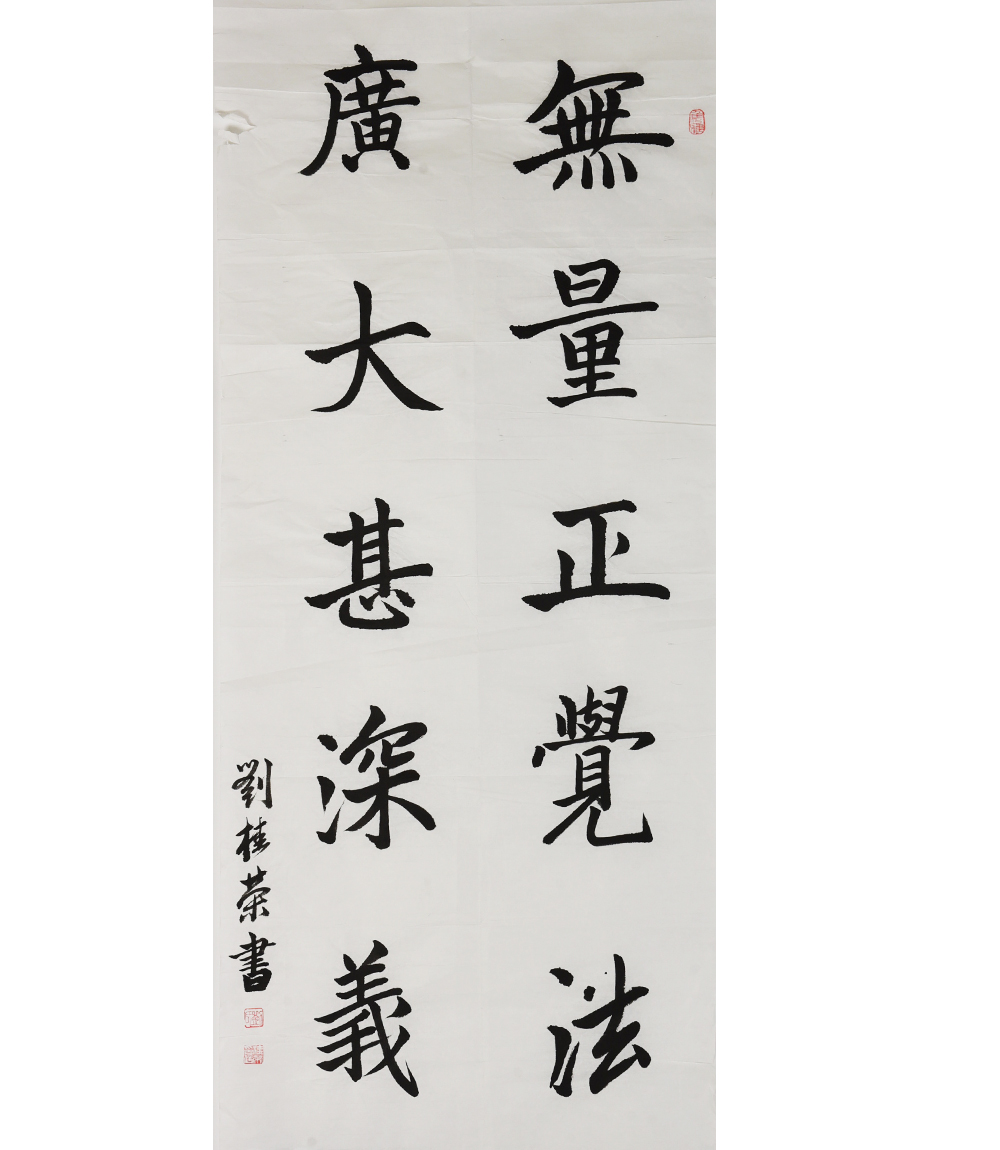 無量正覺法
廣大甚深義
劉桂荣書